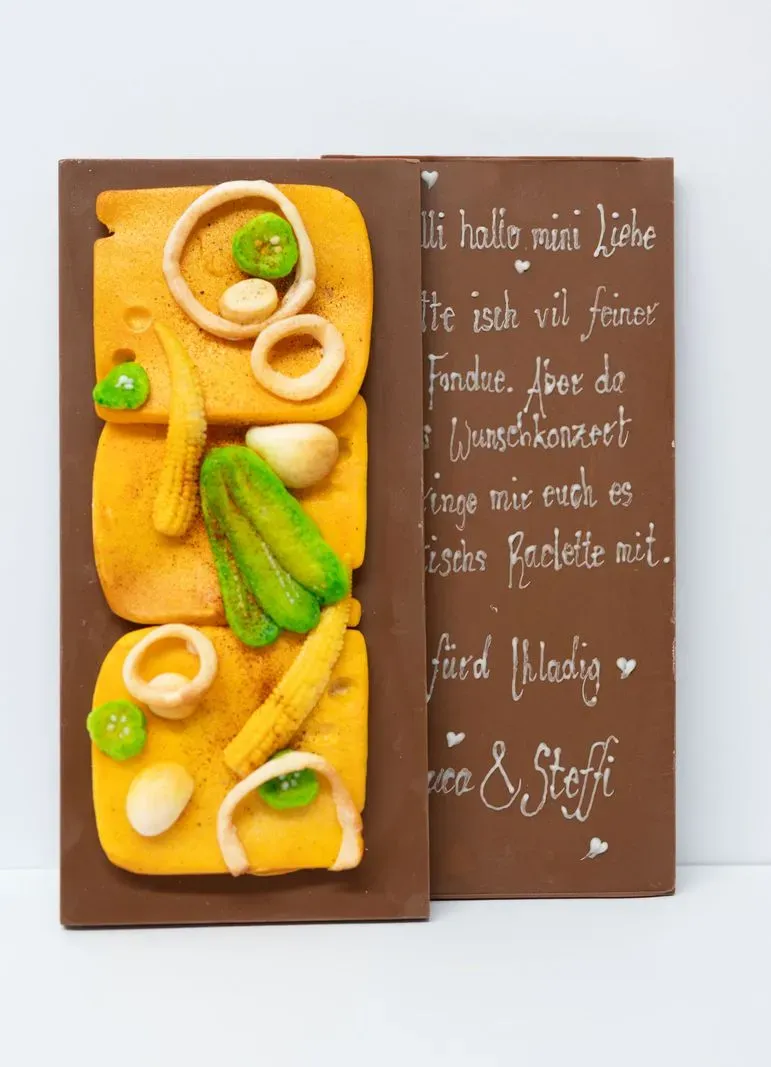 lli hallo mini Liebe
tte isch vil feiner
Fondue. Aber da
s Wunschkonzert
inge mir euch es
tischs Raclette mit.
fürd Ihladig
uca & Steffi